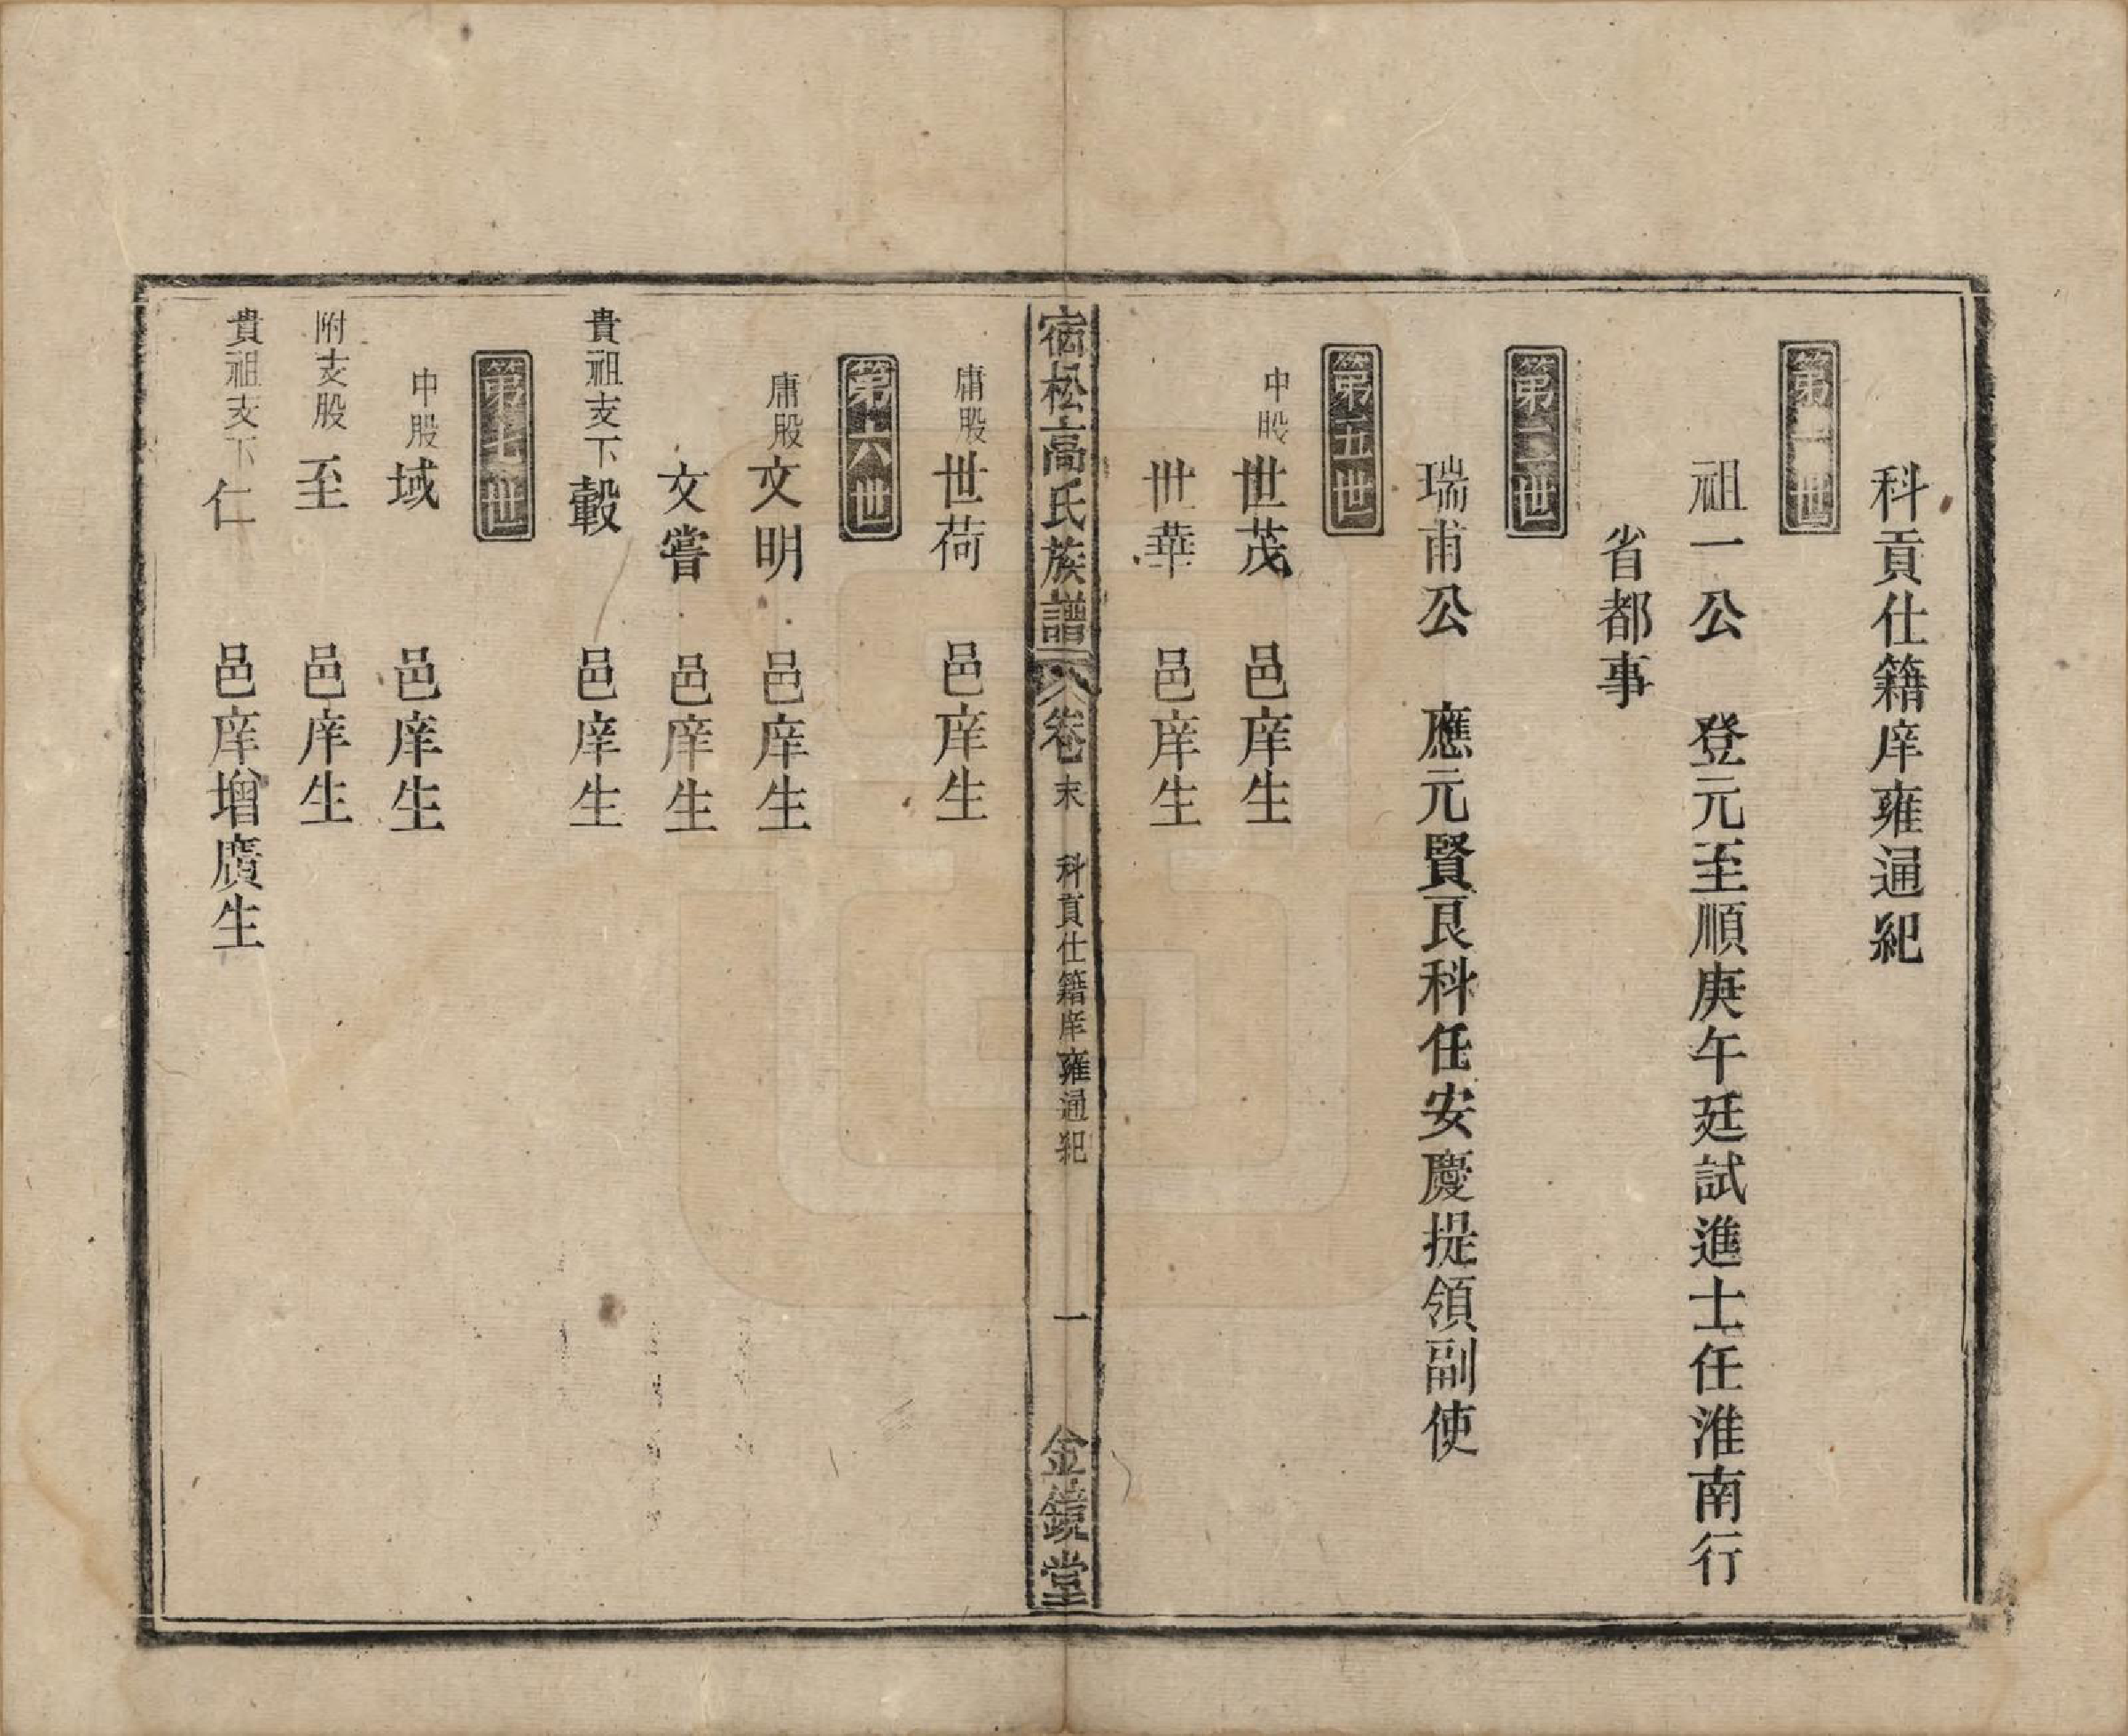 科貢仕籍庠雍通紀
第一世
祖一公 登元至順庚午廷試進士任淮南行
省都事
第二世
瑞甫公 應元賢良科任安慶提領副使
第五世
中股世茂 邑庠生
世華 邑庠生
宿松高氏族譜 卷末 科貢仕籍庠雍通紀 一 金鏡堂
庸股世荷 邑庠生
第六世
庸股文明 邑庠生
文嘗 邑庠生
貴祖支下轂 邑庠生
第七世
中股域 邑庠生
附支股至 邑庠生
貴祖支下仁 邑庠增廣生